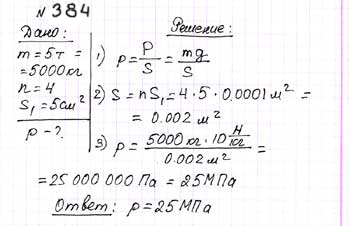 № 384
Дано:
m = 5т =
= 5000кг
n = 4
S₁ = 5см²
p - ?
Решение:
1) p = P/S = mg/S
2) S = nS₁ = 4 · 5 · 0.0001 м² =
= 0.002 м²
3) p = 5000 кг · 10 Н/кг / 0.002 м² =
= 25 000 000 Па = 25МПа
Ответ: p = 25МПа